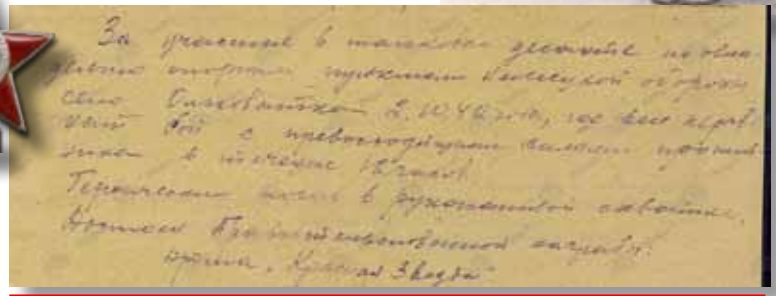 За участие в танковом десанте по овла-
дению опорным пунктом немецкой обороны
село 2.10.42 года, где вел нерав-
ный бой с превосходящими силами против-
ника в течение 12 часов.
Героически погиб в рукопашной схватке.
Достоин Правительственной награды:
ордена „Красная Звезда"